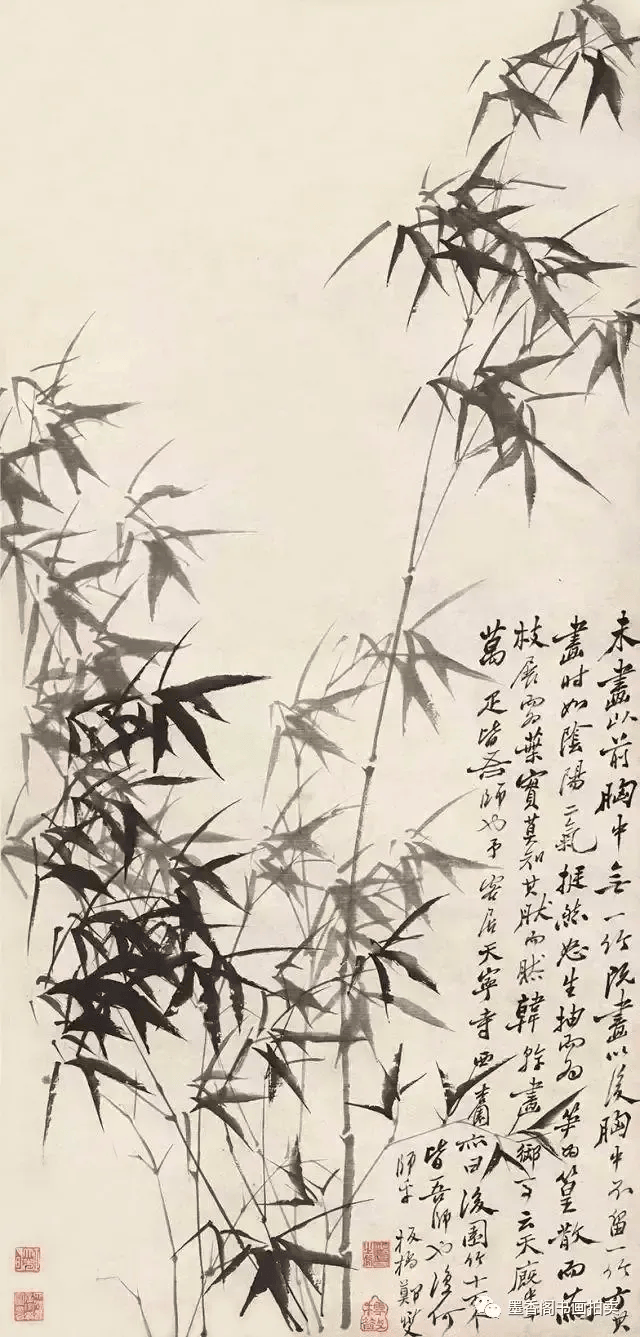 未畫以前胸中無一竹既畫以後胸中不留一竹方其
畫時如陰陽二氣挺然怒生抽而為筍為篁散而為
枝展而為葉實莫知其然而然韓幹畫御馬云天廄中十
萬疋皆吾師也予客居天寧寺西杏園亦曰後園竹十万个
皆吾師也復何
師乎 板橋鄭燮
墨香阁书画拍卖